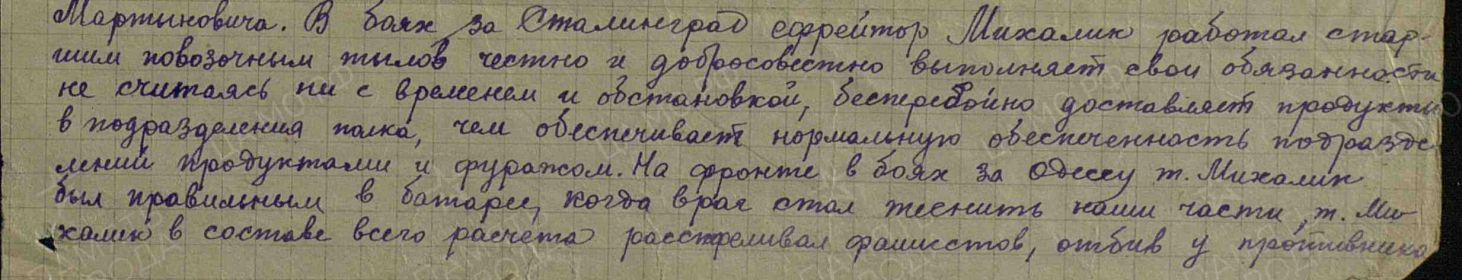 Мартыновича. В боях за Сталинград ефрейтор Михалик работал стар-
шим повозочным тылов честно и добросовестно выполняет свои обязанности
не считаясь ни с временем и обстановкой, бесперебойно доставляет продукты
в подразделения полка, чем обеспечивает нормальную обеспеченность подразде
лений продуктами и фуражом. На фронте в боях за Одессу т. Михалик
был правильным в батарее, когда враг стал теснить наши части, т. Ми-
халик в составе всего расчета расстреливал фашистов, отбив у противника